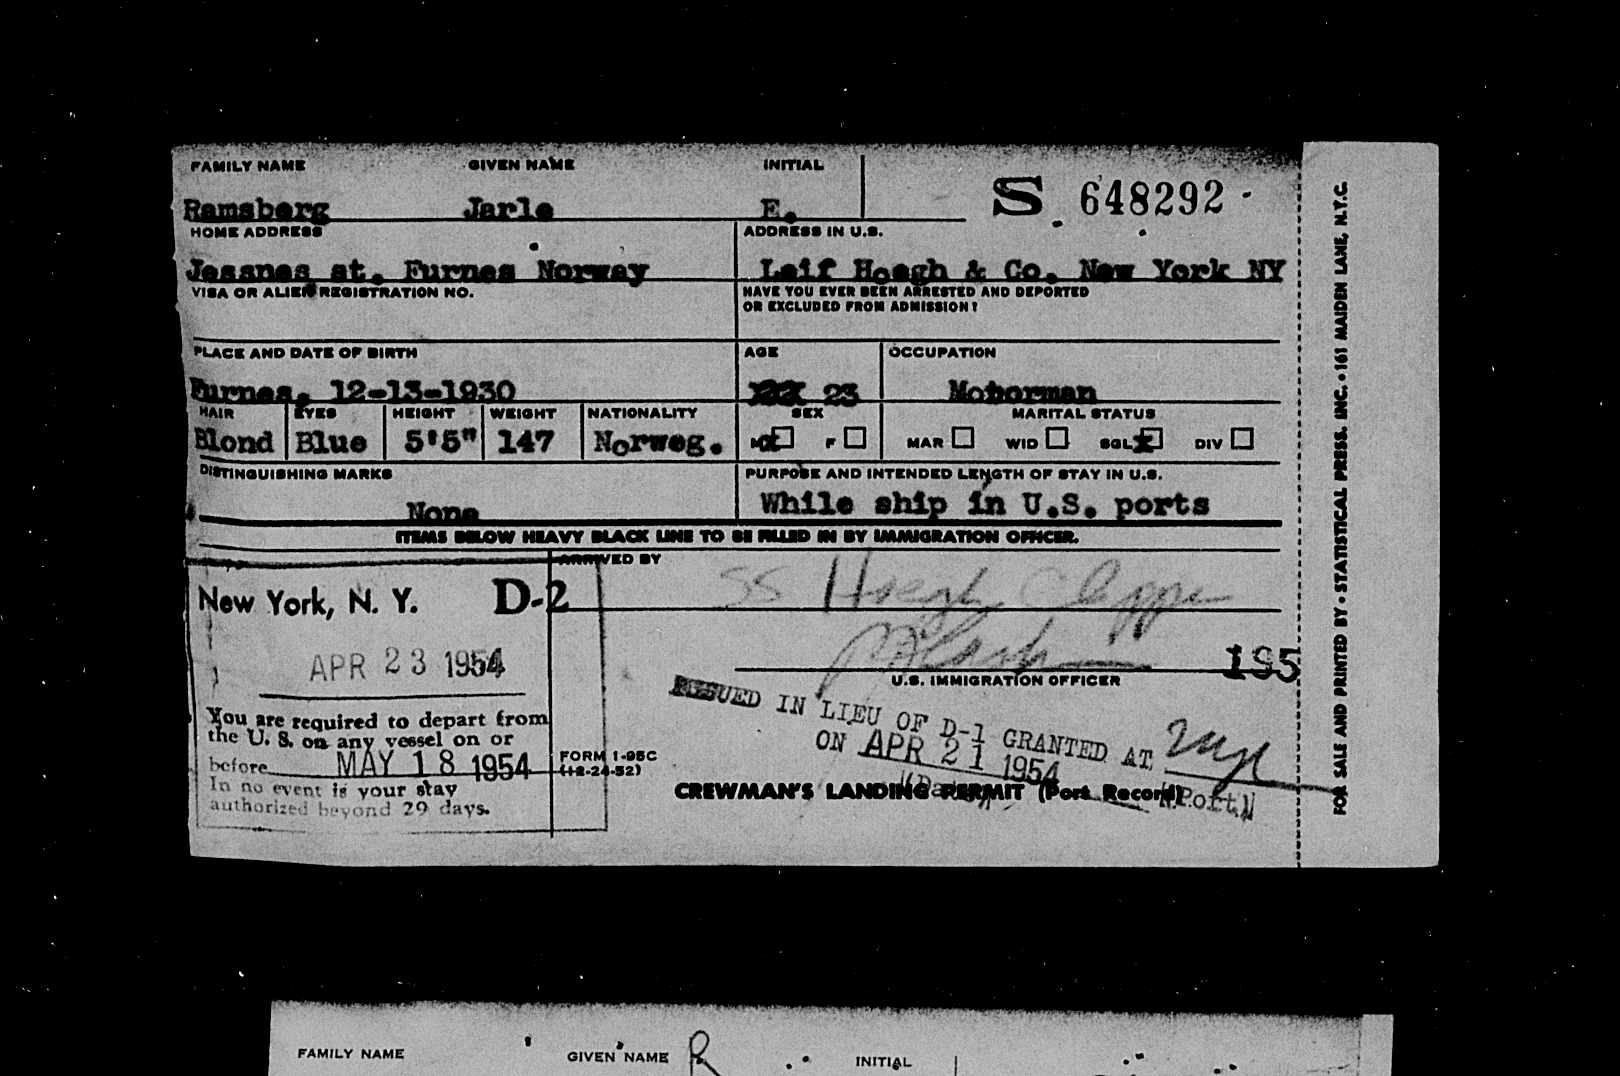 FAMILY NAME GIVEN NAME INITIAL
S 648292
Ramsberg Jarle E.
HOME ADDRESS ADDRESS IN U.S.
Jessnes st. Furnes Norway Leif Hoegh & Co. New York NY
VISA OR ALIEN REGISTRATION NO. HAVE YOU EVER BEEN ARRESTED AND DEPORTED
OR EXCLUDED FROM ADMISSION?
PLACE AND DATE OF BIRTH AGE OCCUPATION
Furnes, 12-13-1930 23 Motorman
HAIR EYES HEIGHT WEIGHT NATIONALITY SEX MARITAL STATUS
Blond Blue 5'5" 147 Norweg. M X F MAR WID SGL X DIV
DISTINGUISHING MARKS PURPOSE AND INTENDED LENGTH OF STAY IN U.S.
None While ship in U.S. ports
ITEMS BELOW HEAVY BLACK LINE TO BE FILLED IN BY IMMIGRATION OFFICER.
ARRIVED BY
New York, N. Y. D-2 SS Hoegh Clipper
APR 23 1954 195
U.S. IMMIGRATION OFFICER
ISSUED IN LIEU OF D-1 GRANTED AT
ON APR 21 1954
(Date) (Port)
You are required to depart from
the U. S. on any vessel on or
before MAY 18 1954
In no event is your stay
authorized beyond 29 days.
FORM I-95C
(12-24-52)
CREWMAN'S LANDING PERMIT (Port Record)
FOR SALE AND PRINTED BY • STATISTICAL PRESS. INC. • 161 MAIDEN LANE, N.Y.C.
FAMILY NAME GIVEN NAME INITIAL